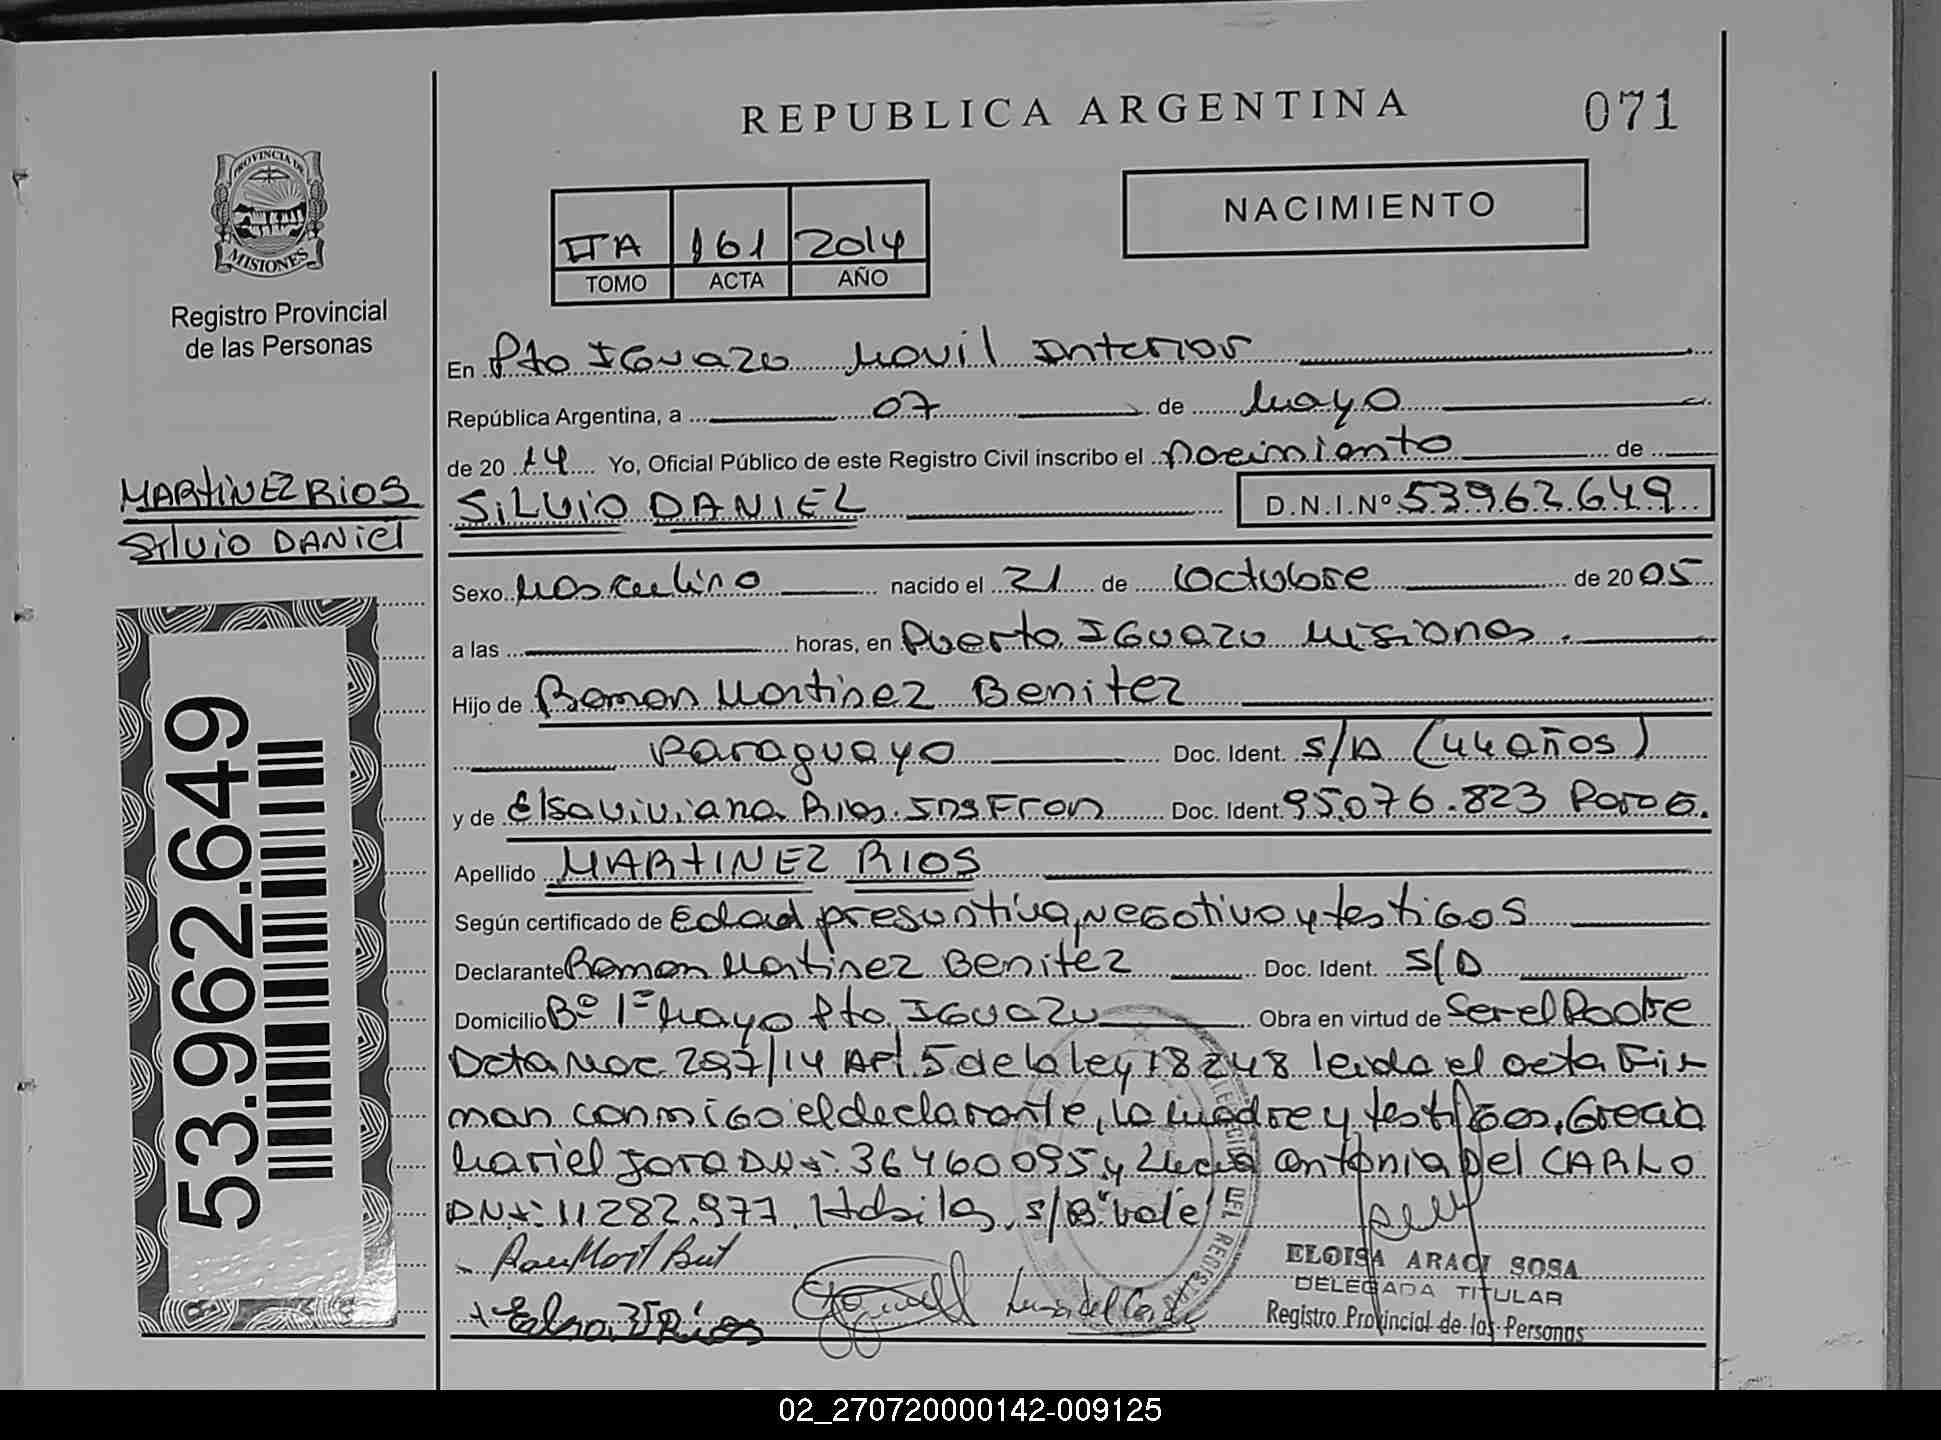 REPUBLICA ARGENTINA
071
PROVINCIA DE
MISIONES
Registro Provincial
de las Personas
NACIMIENTO
IIA 161 2014
TOMO ACTA AÑO
En Pto IGUAZU Movil Interior
República Argentina, a 07 de Mayo
de 20 14 Yo, Oficial Público de este Registro Civil inscribo el nacimiento de
SILVIO DANIEL D.N.I.Nº 53962649
MARTINEZ RIOS
Silvio DANIEL
53.962.649
Sexo Masculino nacido el 21 de Octubre de 20 05
a las horas, en Puerto IGUAZU Misiones.
Hijo de Ramon Martinez Benitez
Paraguayo Doc. Ident. S/D (44 años)
y de Elsa Viviana Rios Insfran Doc. Ident. 95.076.823 ParaG.
Apellido MARTINEZ RIOS
Según certificado de Edad presuntiva, negativa y testigos
Declarante Ramon Martinez Benitez Doc. Ident. S/D
Domicilio Bº 1º Mayo Pto IGUAZU Obra en virtud de Ser el Padre
Acta Nac 297/14 Art. 5 de la ley 18248 leida el acta Fir
man conmigo el declarante, la Madre y testigos, Grecia
Mariel Jara DNI: 36460095 y Lucia Antonia Del CARLO
DNI: 11282.977. Habiles, S/B" vale
Elsa V Rios
ELOISA ARACI SOSA
DELEGADA TITULAR
Registro Provincial de las Personas
02_270720000142-009125